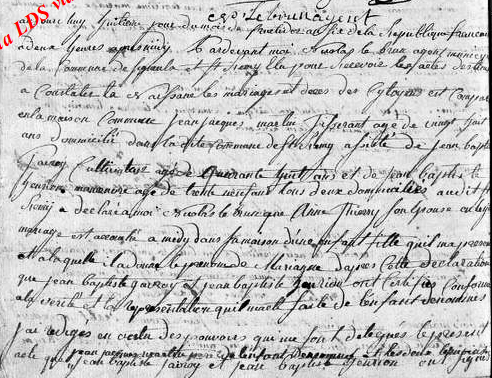 Le brun agent
aujourd'huy huitieme jour du mois de fructidor an six de la Republique francaise
a deux heures apres midy Pardevant moi Nicolas le brun agent municip
de la commune de et St Remy Elu pour Recevoir les actes
a Constater la naissance les mariages et deces des Cytoyens est Comparu
en la maison Commune jean jacques martin Tisserant agé de vingt huit
ans domicilié dans la dite commune de St Remy assisté de jean baptiste
Cultivateur agé de quarante huit ans et de jean baptiste
henrion manouvrie age de trente neuf ans tous deux domiciliés audit St
Remy a declaré a moi Nicolas le brun que Anne Thierry son Epouse en
mariage est accouchée a midy dans sa maison d'une enfant fille qu'il ma presenté
et a laquelle il a donné le prenom de Marianne d'apres Cette declaration
que jean baptiste et jean baptiste henrion ont certifiés Conforme
a la verité et la representation qui m'a été faite de l'enfant denommée
j'ai rediges en vertu des pouvoirs qui me sont delegués le present
acte que jean jacques martin pere de l'enfant
jean baptiste et jean baptiste henrion ont signé
la LDS via